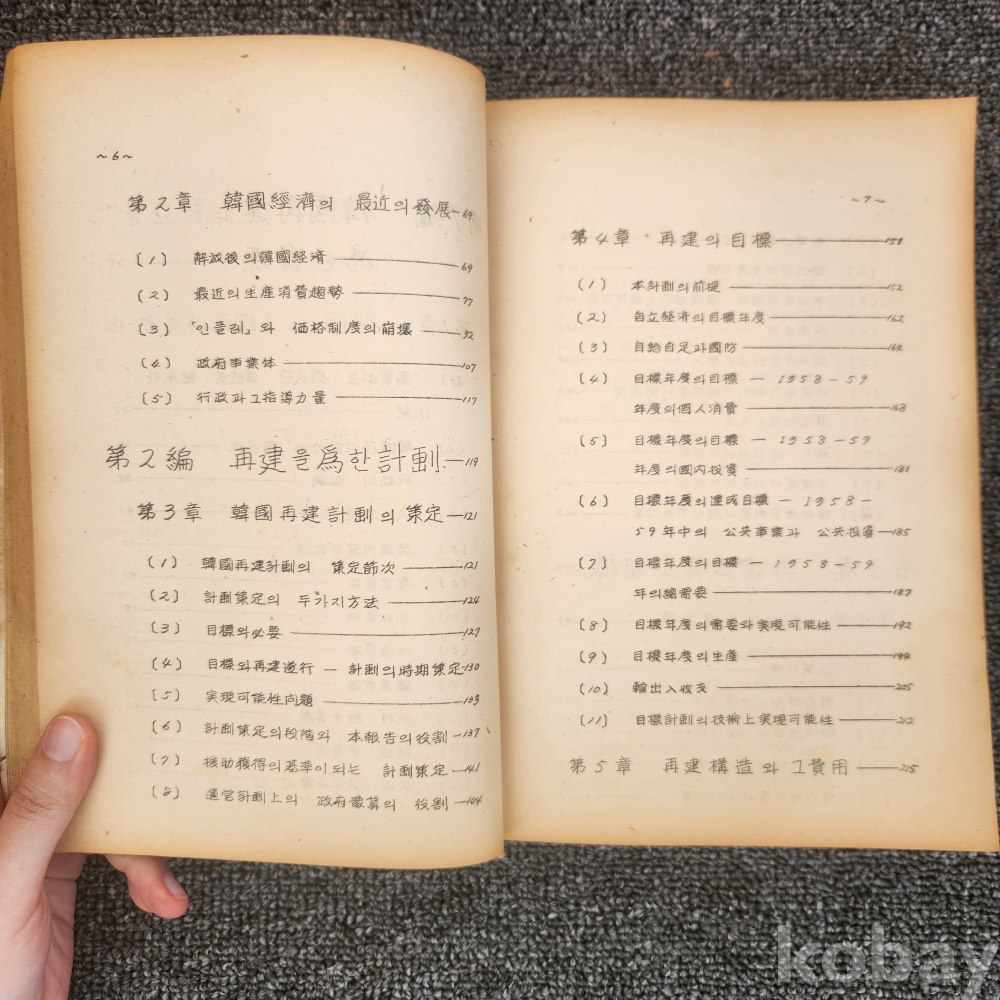 ~6~
第2章 韓國經濟의 最近의 發展 69
(1) 解放後의 韓國經濟 69
(2) 最近의 生産消費趨勢 77
(3) 「인플레」와 価格制度의 崩壞 92
(4) 政府事業体 107
(5) 行政과 그 指導力量 117
第2編 再建을 爲한 計劃 119
第3章 韓國再建計劃의 策定 121
(1) 韓國再建計劃의 策定節次 121
(2) 計劃策定의 두가지方法 124
(3) 目標의 必要 127
(4) 目標와 再建遂行 — 計劃의 時期策定 130
(5) 実現可能性問題 133
(6) 計劃策定의 段階와 本報告의 役割 137
(7) 援助獲得의 基準이 되는 計劃策定 141
(8) 運営計劃上의 政府豫算의 役割 144
~7~
第4章 再建의 目標 151
(1) 本計劃의 前提 152
(2) 自立経済의 目標年度 162
(3) 自給自足과 國防 164
(4) 目標年度의 目標 — 1958-59
年度의 個人消費 168
(5) 目標年度의 目標 — 1958-59
年度의 國内投資 181
(6) 目標年度의 達成目標 — 1958-
59年中의 公共事業과 公共投資 185
(7) 目標年度의 目標 — 1958-59
年의 總需要 187
(8) 目標年度의 需要와 実現可能性 192
(9) 目標年度의 生産
(10) 輸出入收支 205
(11) 目標計劃의 技術上 実現可能性 212
第5章 再建構造와 그 費用 215
kobay